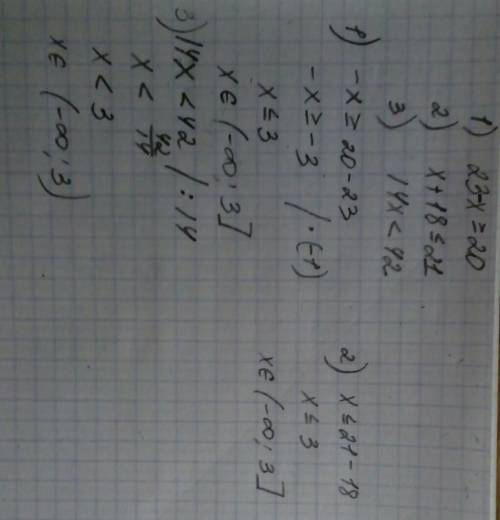 1) 23-x ≥ 20
2) x+18 ≤ 21
3) 14x < 42
1) -x ≥ 20-23
-x ≥ -3 / · (-1)
x ≤ 3
x∈ (-∞; 3]
2) x ≤ 21-18
x ≤ 3
x∈ (-∞; 3]
3) 14x < 42 / : 14
x < 42/14
x < 3
x∈ (-∞; 3)